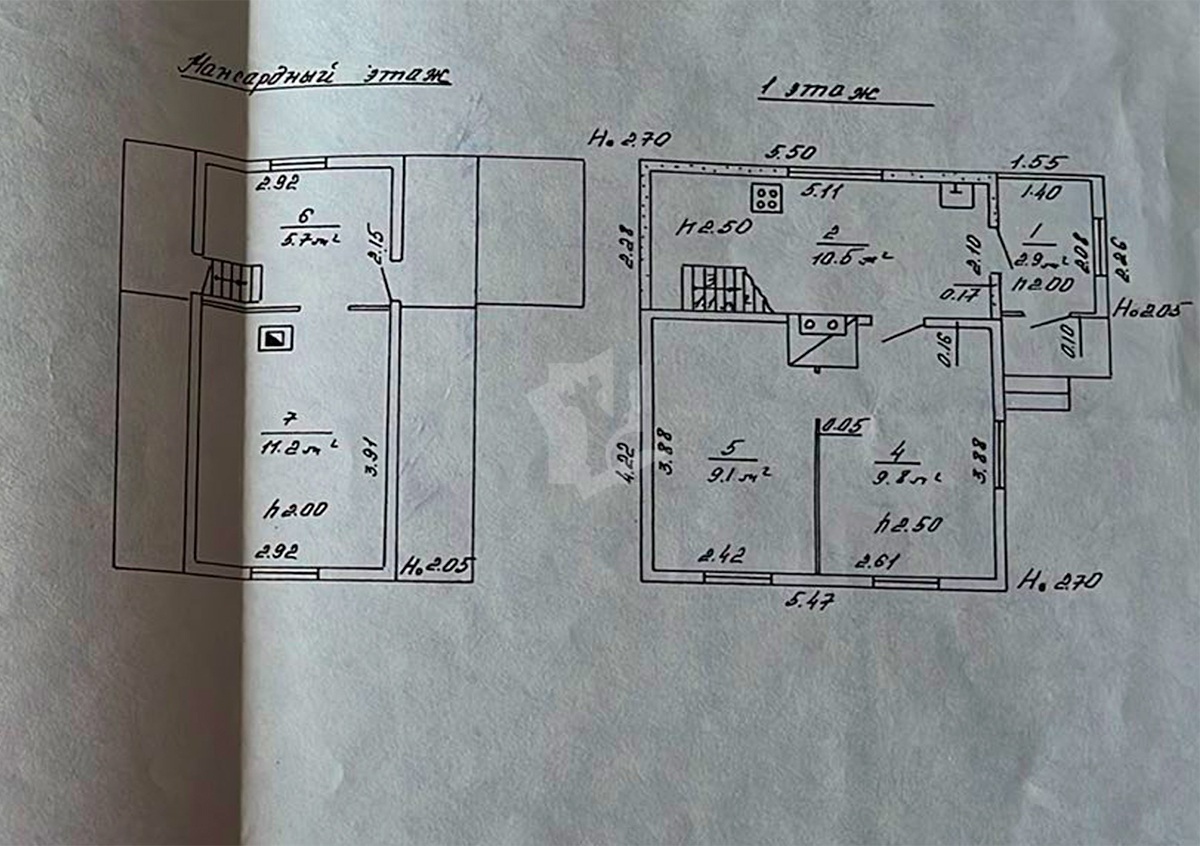 Мансардный этаж
2.92
6
5.7 м²
2.15
7
11.2 м²
3.91
h 2.00
2.92
Н. 2.05
1 этаж
Н. 2.70
5.50
1.55
5.11
1.40
h 2.50
2.28
2
10.5 м²
2.10
1
2.9 м²
2.08
2.26
h 2.00
0.17
Н. 2.05
0.16
0.10
0.05
4.22
3.88
5
9.1 м²
4
9.8 м²
3.88
h 2.50
2.42
2.61
5.47
Н. 2.70